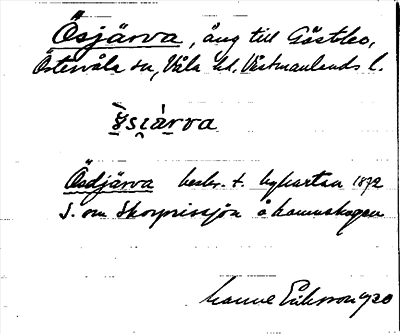 Ösjärva, äng till Gästbo,
Östervåla sn, Våla hd, Västmanlands l.
Ösdjärva beskr. t. bykartan 1872
S. om Skorprissjön å hamnskogen
Manne Eriksson 1920